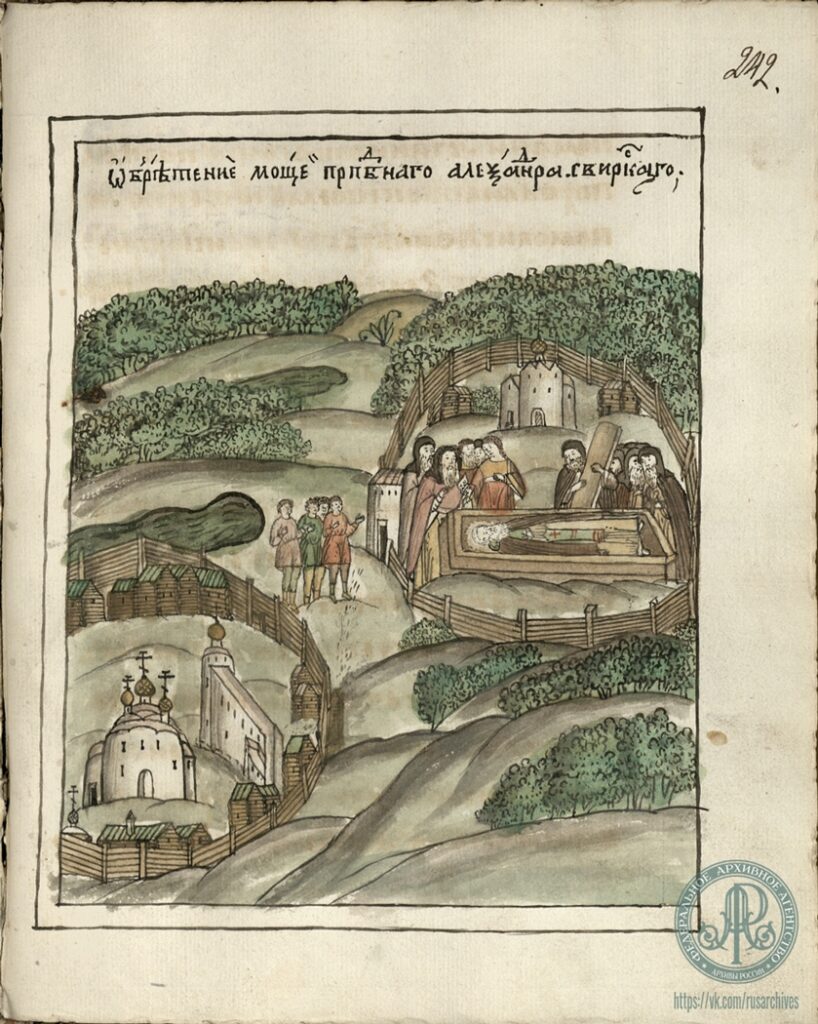 242.
Ѡбрѣтение моще̏ прпⷣбнаго алеѯаⷣнра. свирскаго;
ФЕДЕРАЛЬНОЕ АРХИВНОЕ АГЕНТСТВО
АРХИВЫ РОССИИ
https://vk.com/rusarchives